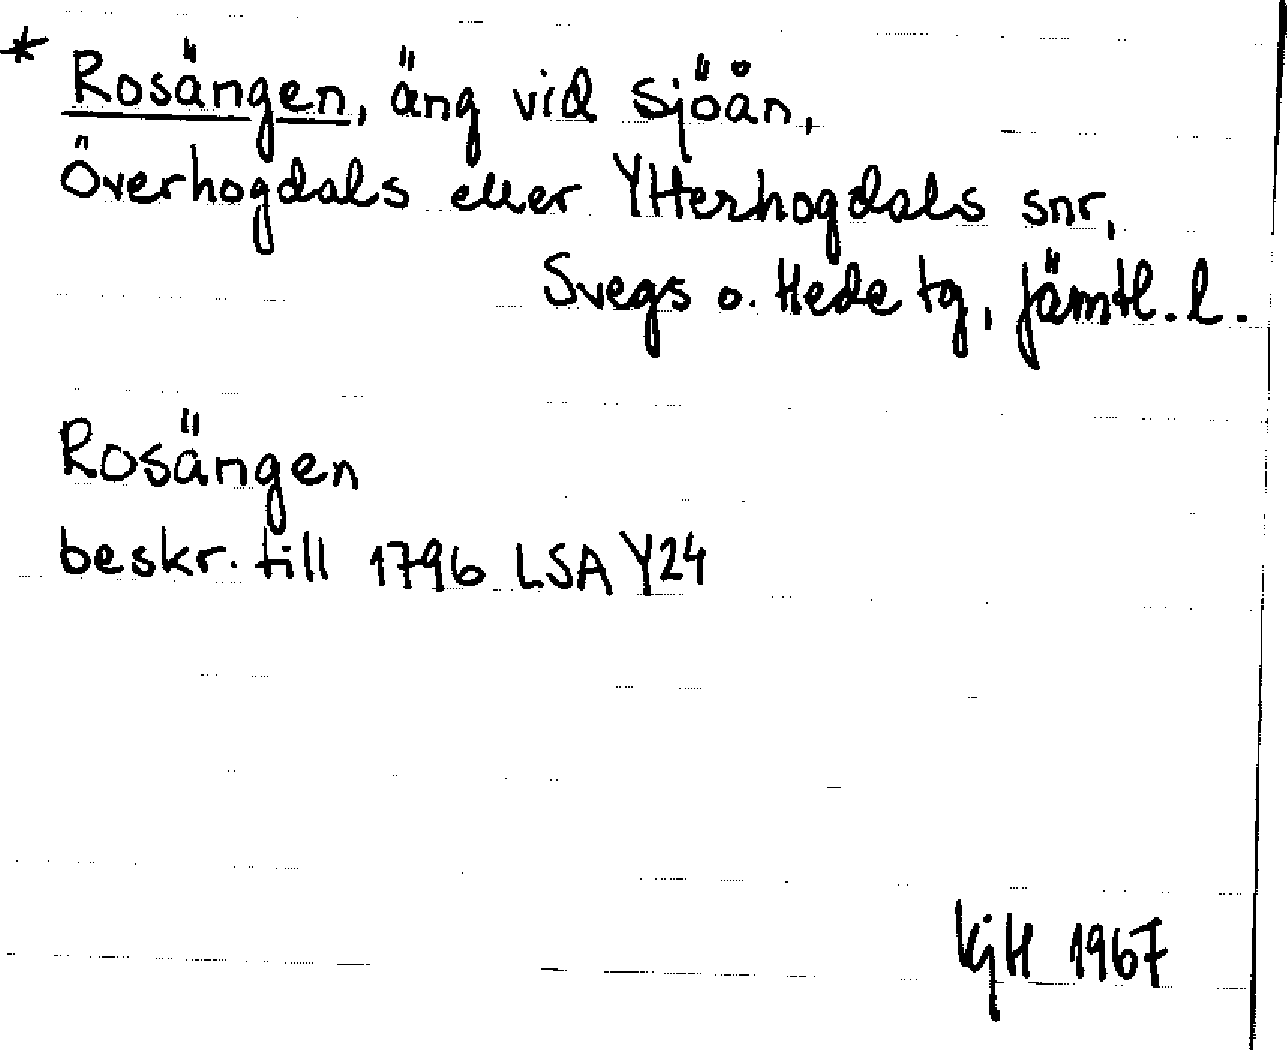 * Rosängen, äng vid Sjöån,
Överhogdals eller Ytterhogdals snr,
Svegs o. Hede tg, Jämtl. l.
Rosängen
beskr. till 1796 LSA Y24
KjH 1967